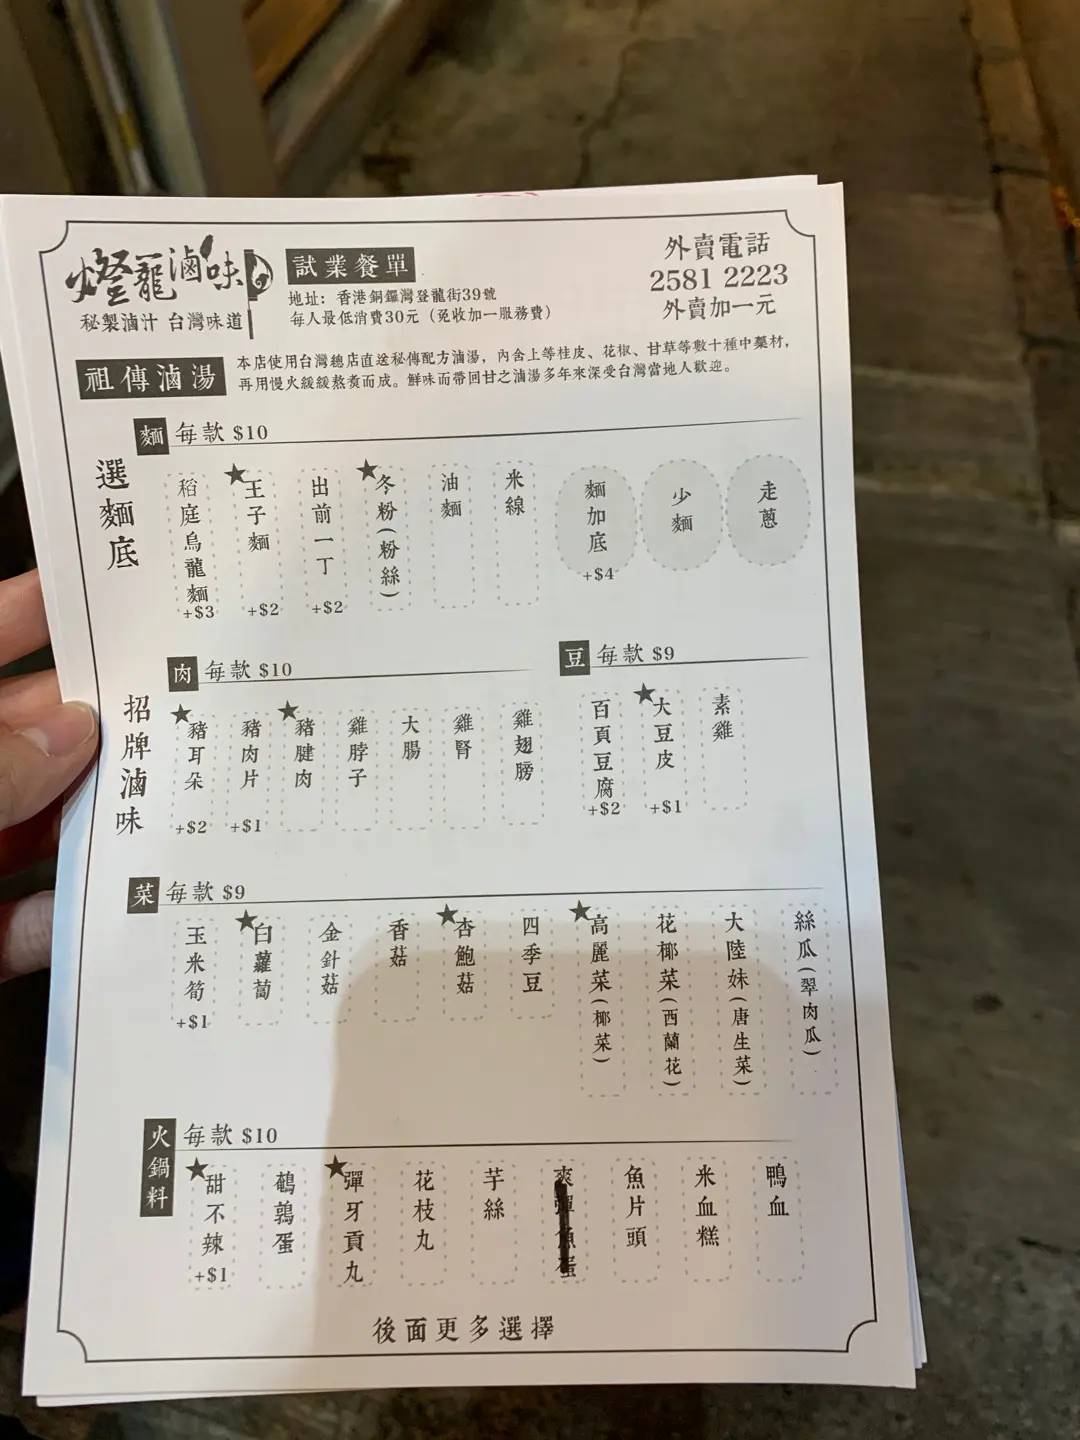 燈籠滷味
秘製滷汁 台灣味道
試業餐單
地址：香港銅鑼灣登龍街39號
每人最低消費30元（免收加一服務費）
外賣電話
2581 2223
外賣加一元
祖傳滷湯
本店使用台灣總店直送秘傳配方滷湯，內含上等桂皮、花椒、甘草等數十種中藥材，
再用慢火緩緩熬煮而成。鮮味而帶回甘之滷湯多年來深受台灣當地人歡迎。
選麵底
麵 每款 $10
稻庭烏龍麵 +$3
★王子麵 +$2
出前一丁 +$2
★冬粉(粉絲)
油麵
米線
麵加底 +$4
少麵
走蔥
招牌滷味
肉 每款 $10
★豬耳朵 +$2
豬肉片 +$1
★豬腱肉
雞脖子
大腸
雞腎
雞翅膀
豆 每款 $9
百頁豆腐 +$2
★大豆皮 +$1
素雞
菜 每款 $9
玉米筍 +$1
★白蘿蔔
金針菇
香菇
★杏鮑菇
四季豆
★高麗菜(椰菜)
花椰菜(西蘭花)
大陸妹(唐生菜)
絲瓜(翠肉瓜)
火鍋料 每款 $10
★甜不辣 +$1
鵪鶉蛋
★彈牙貢丸
花枝丸
芋絲
爽彈魚蛋
魚片頭
米血糕
鴨血
後面更多選擇